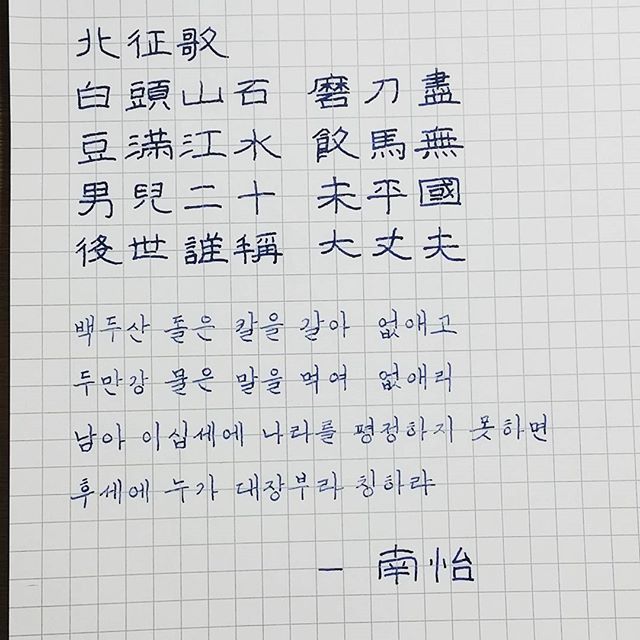 北征歌
白頭山石 磨刀盡
豆滿江水 飮馬無
男兒二十 未平國
後世誰稱 大丈夫
백두산 돌은 칼을 갈아 없애고
두만강 물은 말을 먹여 없애리
남아 이십세에 나라를 평정하지 못하면
후세에 누가 대장부라 칭하랴
- 南怡